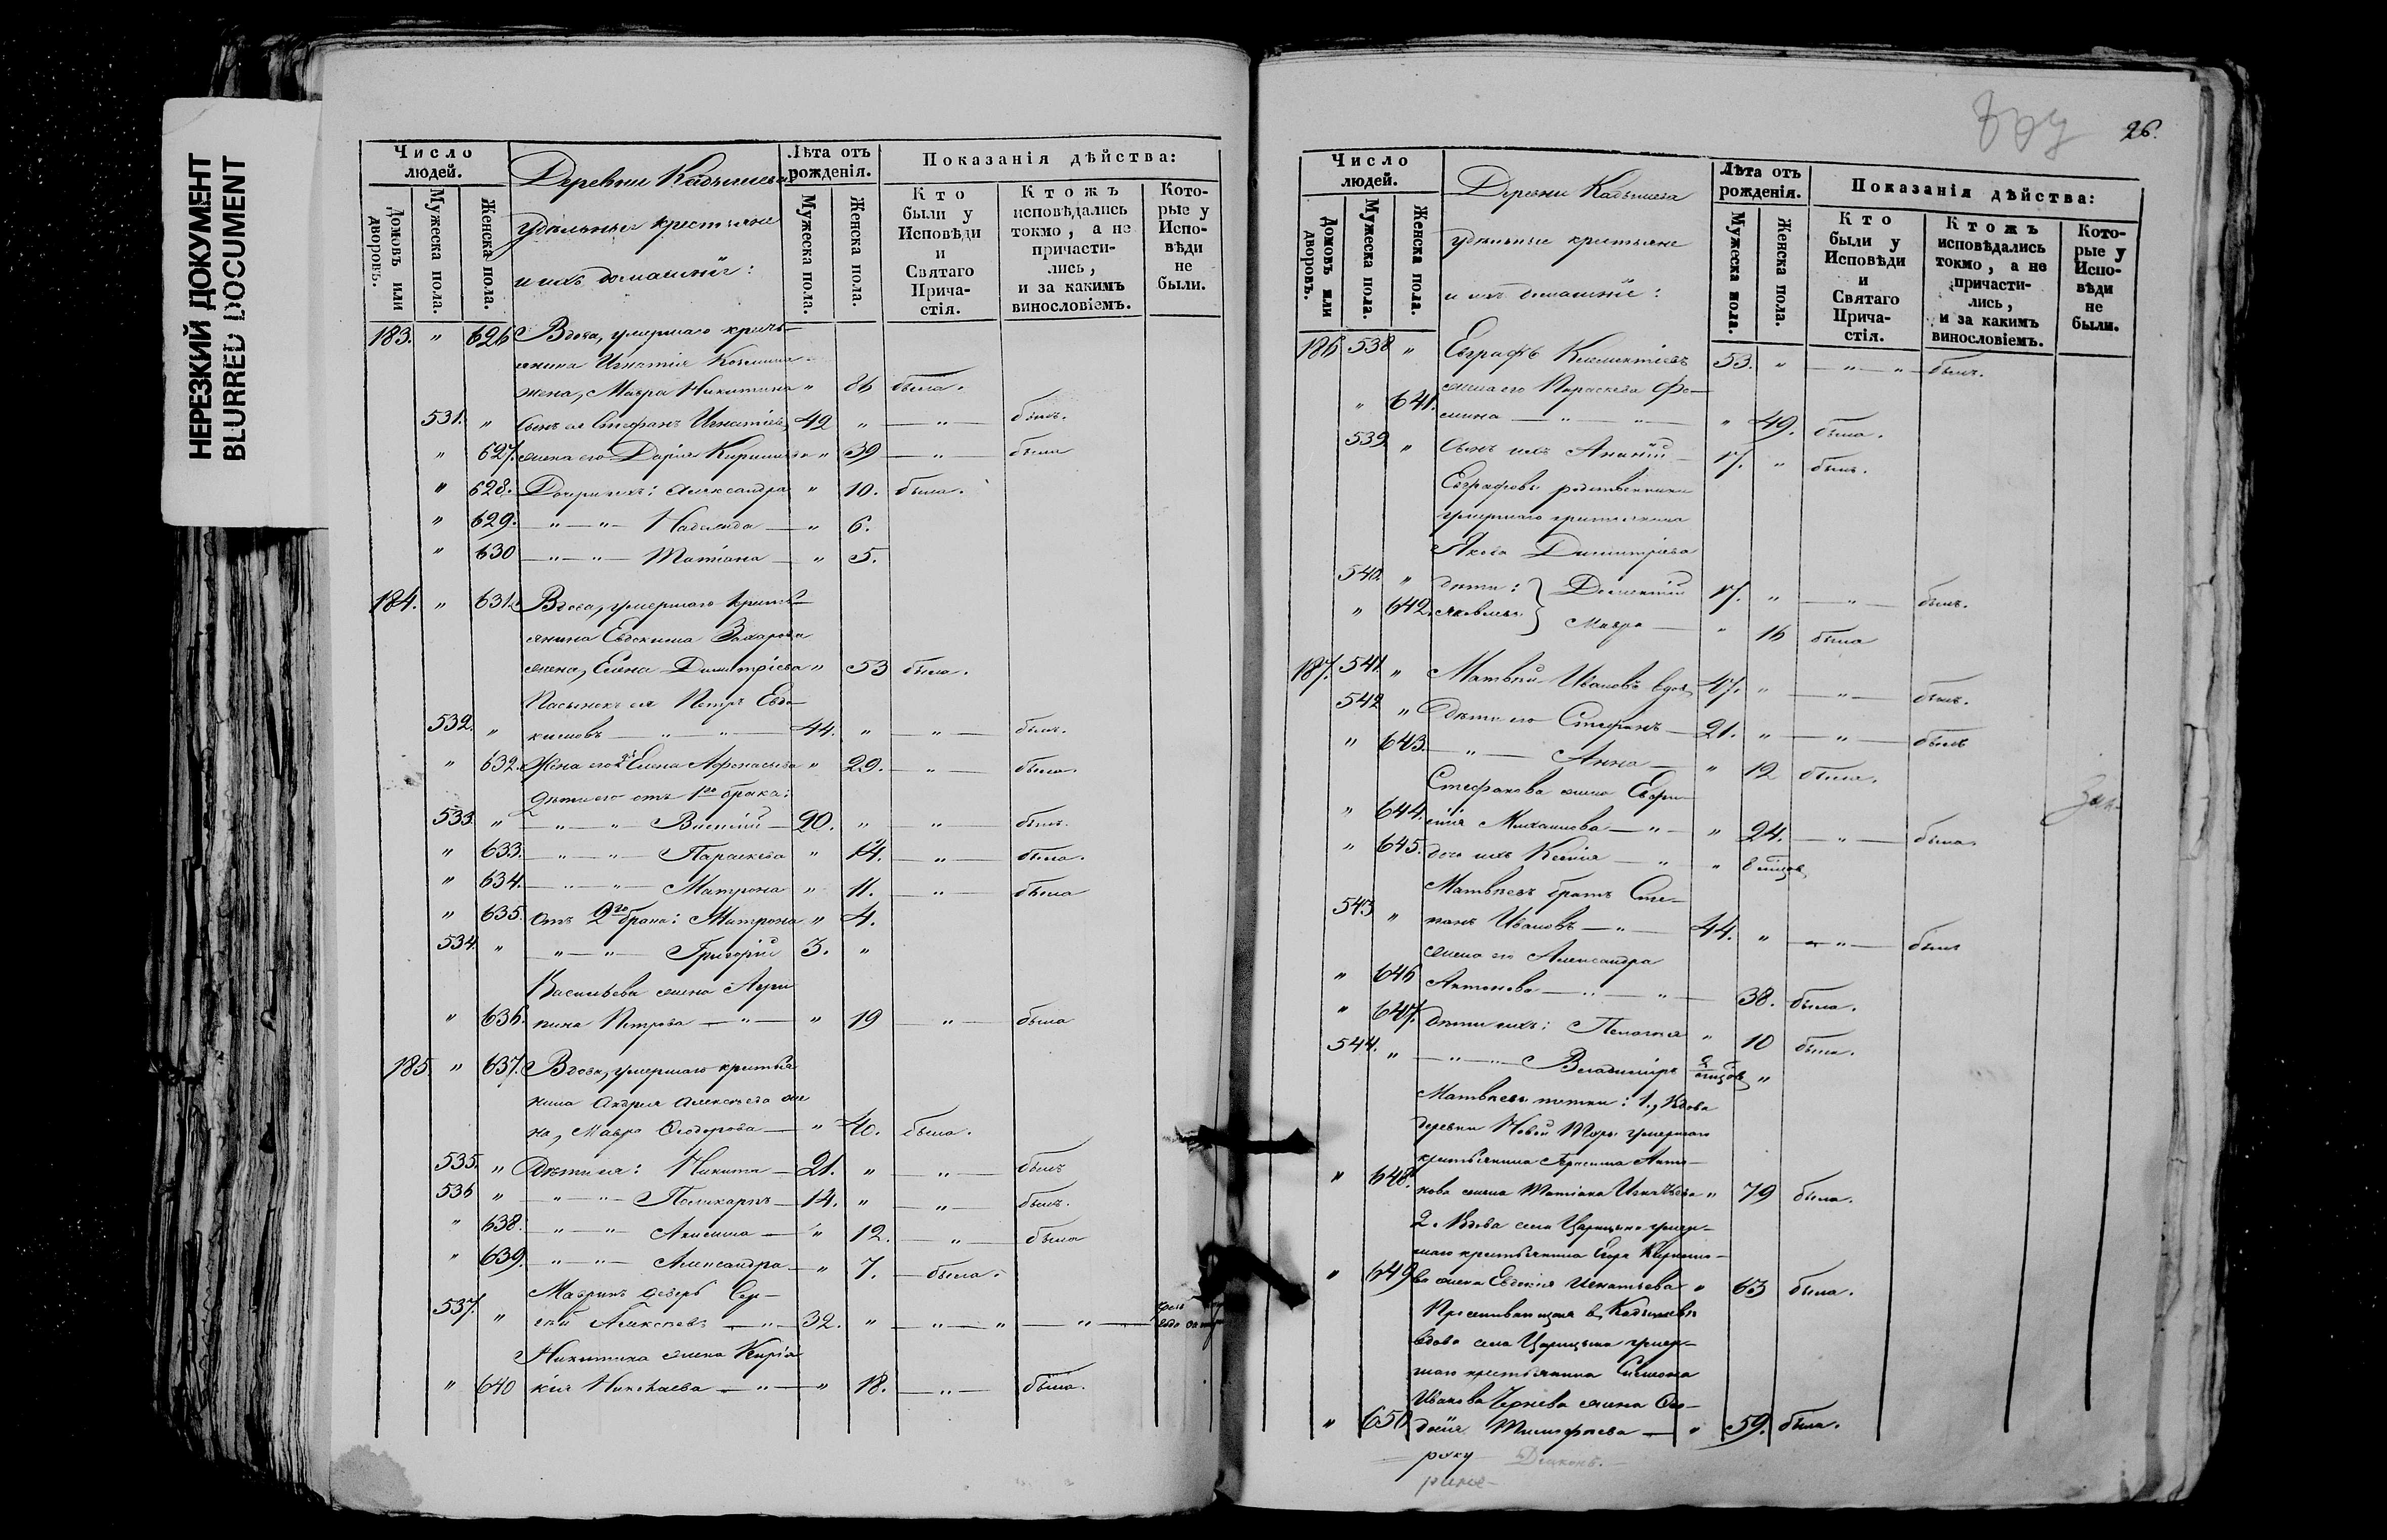 НЕРЕЗКИЙ ДОКУМЕНТ
BLURRED DOCUMENT
Число людей.
Домовъ или дворовъ.
Мужеска пола.
Женска пола.
Деревни Кадышева
удѣльные крестьяне
и ихъ домашніе:
Лѣта отъ рожденія.
Мужеска пола.
Женска пола.
Показанія дѣйства:
Кто были у Исповѣди и Святаго Прича-стія.
Ктожъ исповѣдались токмо, а не причасти-лись, и за какимъ винословіемъ.
Кото-рые у Испо-вѣди не были.
183. " 626 Вдова, умершаго кресть-
янина Игнатія Козмина
жена, Мавра Никитина " 86 была.
531. " сынъ ея Стефанъ Игнатіевъ 42 " — " — былъ.
" 627. жена его Дарія " 39 — " — была
" 628. Дочери ихъ: Александра " 10. была.
" 629. — " — " — Надежда — " 6.
" 630 — " — " — Татіана — " 5.
184. " 631. Вдова, умершаго кресть-
янина Евдокима Захарова
жена, Елена Димитріева " 53 была.
Пасынокъ ея Петръ Евдо-
532. " кимовъ — " — " — 44. " — " — былъ.
" 632. Жена его Елена Афонасьева " 29. — " — была.
Дѣти его отъ 1го брака:
533. " — " — " — Василій — 20. " — " — былъ.
" 633. — " — " — Параскева " 14. — " — была.
" 634. — " — " — Матрона " 11. — " — была
" 635. отъ 2го брака: Матрона " 4.
534. " — " — " — Григорій 3. "
Васильева жена Агри
" 636. пина Петрова — " — " 19 — " — была
185. " 637. Вдова, умершаго крестья
нина Андрея Алексѣева же
на, Мавра Ѳеодорова — " 40. была.
535. " Дѣти ея: Никита — 21. " — " — былъ
536 " — " — " — Поликарпъ — 14. " — " — былъ.
" 638. — " — " — Анисима — " 12. — " — была
" 639. — " — " — Александра — " 7. — была.
Мавринъ деверь Сер-
537. " гѣй Алексѣевъ — " — 32. " — " — " — " —
Никитина жена Кирія
" 640 кія Николаева — " — " 18. — " — была.
26.
Число людей.
Домовъ или дворовъ.
Мужеска пола.
Женска пола.
Деревни Кадышева
удѣльные крестьяне
и ихъ домашніе:
Лѣта отъ рожденія.
Мужеска пола.
Женска пола.
Показанія дѣйства:
Кто были у Исповѣди и Святаго Прича-стія.
Ктожъ исповѣдались токмо, а не причасти-лись, и за какимъ винословіемъ.
Кото-рые у Испо-вѣди не были.
186 538 " Евграфъ 53. " — " — " — былъ.
жена его Параскева Фо-
" 641. мина — " — " — " 49. была.
539. " сынъ ихъ Ананій — 17. " былъ.
Евграфовы родственники
умершаго крестьянина
Якова Димитріева
540. " дѣти: Дементій 17. " — " — былъ.
" 642. Яковлевы Мавра — " 16 была
187. 541. " Матвѣй Ивановъ вдов, 47. " — " — былъ.
542 " Дѣти его Стефанъ — 21. " — " — былъ
" 643. — " — Анна — " 12 была.
Стефанова жена Евфи-
" 644. мія Михайлова — " — " 24. — " — была.
" 645. дочь ихъ Ксенія — " " 8 мѣсяц.
Матвѣевъ братъ Сте-
543 " панъ Ивановъ — " — 44. " — " — былъ
жена его Александра
" 646 Антонова — " — " — 38. была.
" 647. Дѣти ихъ: Пелагія " 10 была.
544. " — " — " — Владиміръ "
Матвѣевы тетки: 1., Вдова
деревни Новой умершаго
крестьянина Герасима Анто-
" 648. нова жена Татіана Игнатьева " 79 была.
2. Вдова села Царицына умер-
шаго крестьянина Егора Кирило-
" 649 ва жена Евдокія Игнатьева " 63 была.
Проживающая въ Кадышевѣ
вдова села Царицына умер-
шаго крестьянина Симеона
Иванова жена Ѳео-
" 650. досія Тимофѣева — " 59. была.
руку Діаконъ.